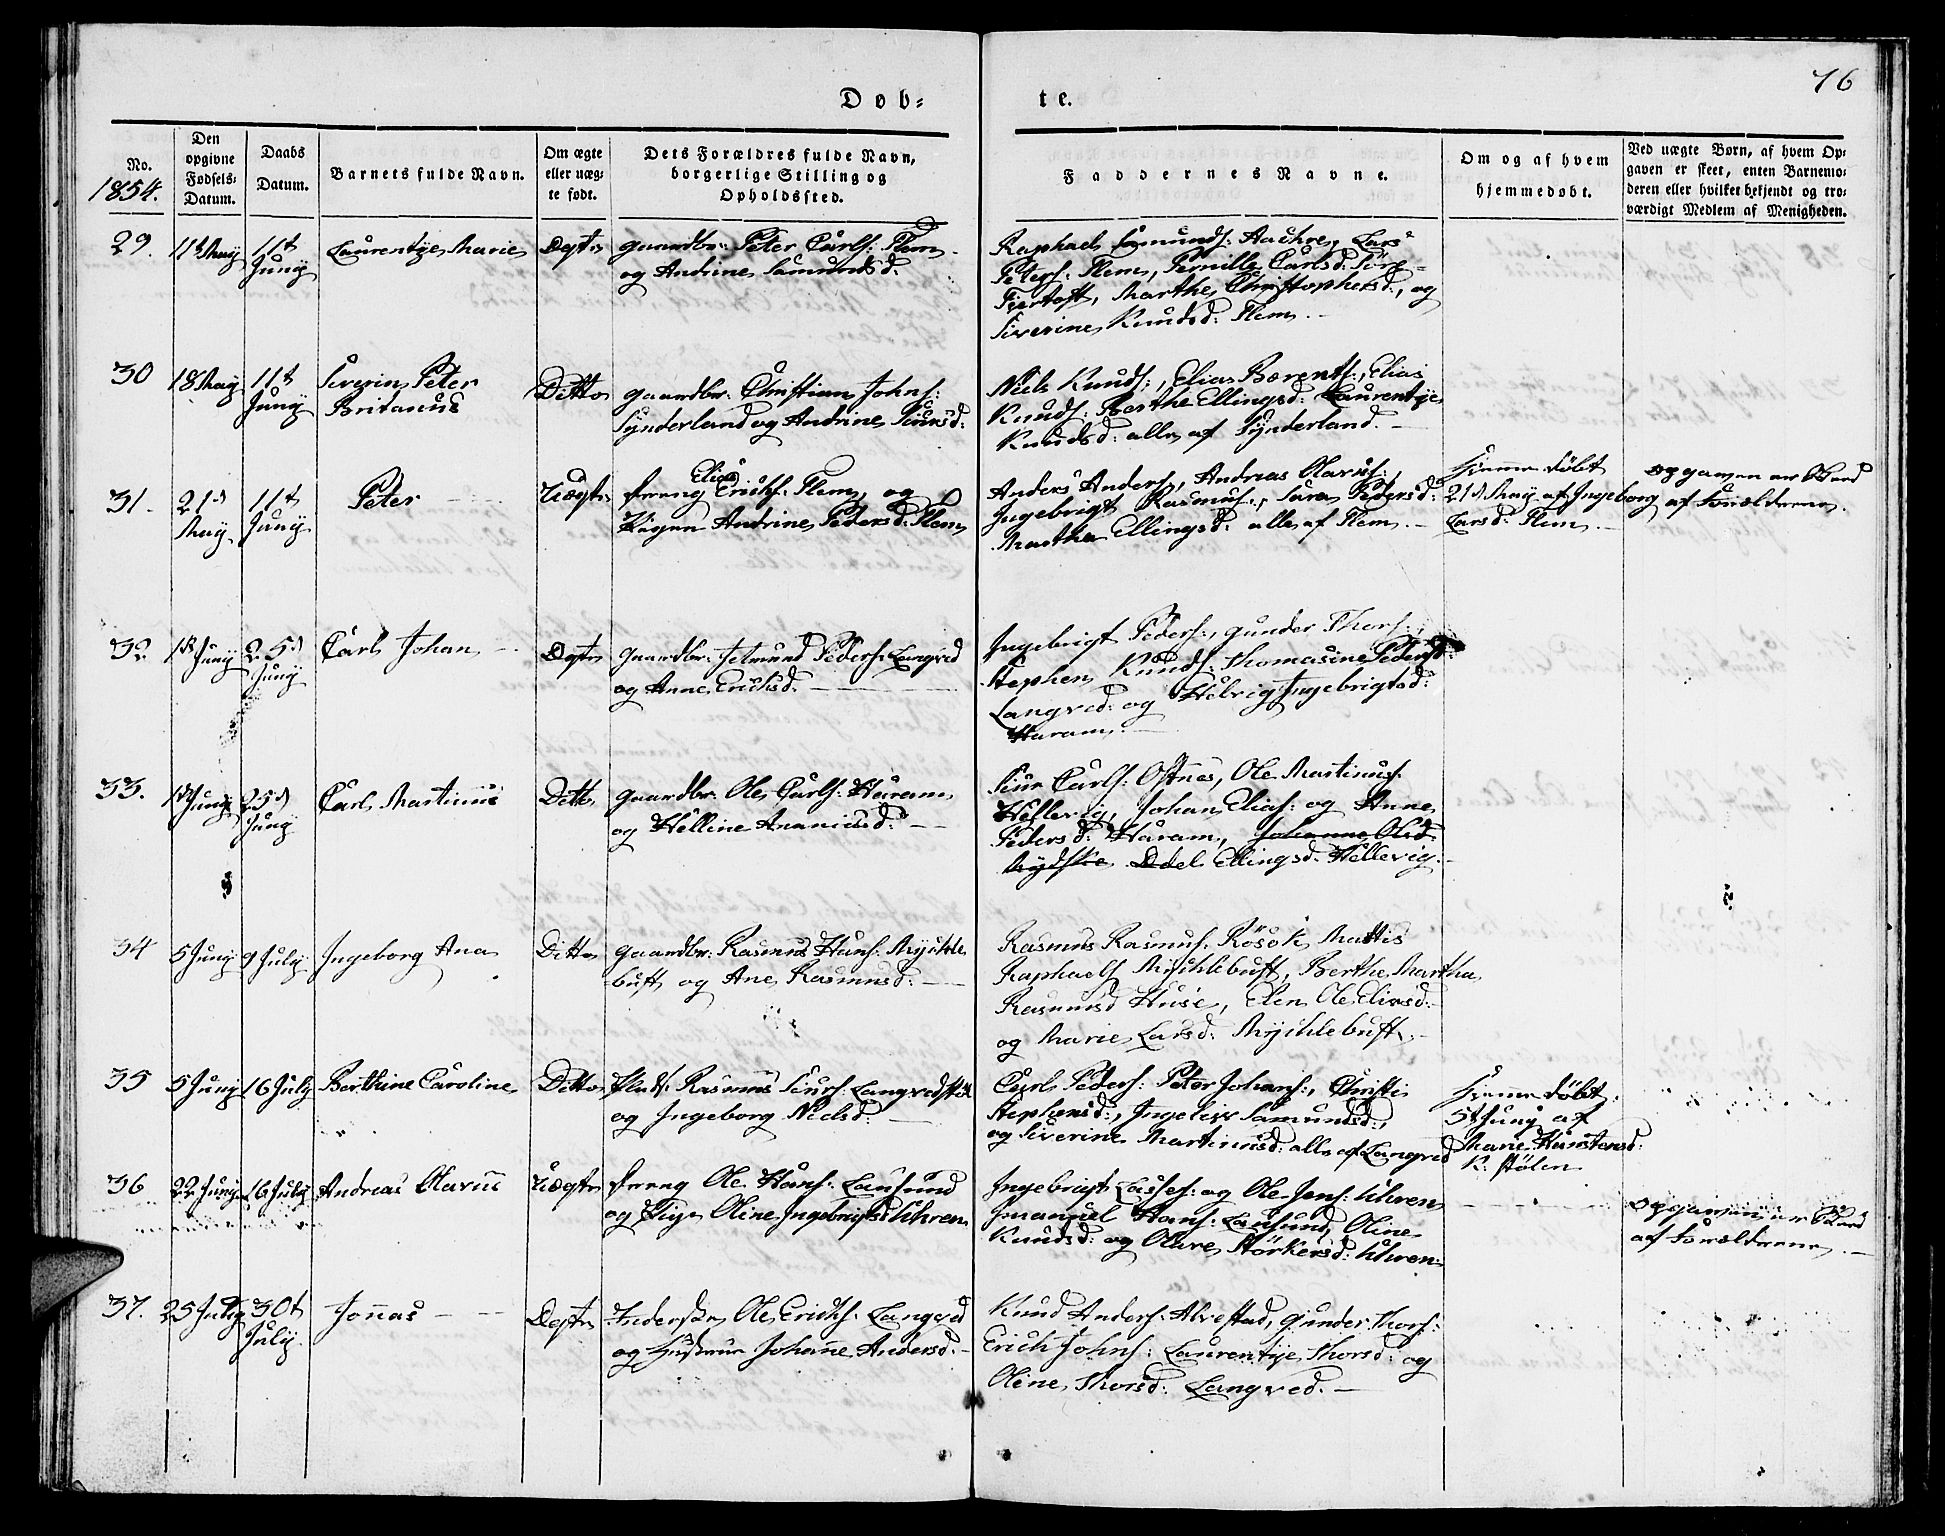 76
Døb=
te.
No.
1854.
Den
opgivne
Fødsels=
Datum.
Daabs
Datum.
Barnets fulde Navn.
Om ægte
eller uæg=
te født.
Dets Forældres fulde Navn,
borgerlige Stilling og
Opholdssted.
Faddernes Navne.
Om og af hvem
hjemmedøbt.
Ved uægte Børn, af hvem Op=
gaven er skeet, enten Barnemo=
deren eller hvilket bekjendt og tro=
værdigt Medlem af Menigheden.
29.
11t May
11t
Juny
Laurentze Marie
Ægte
gaardbr: Peter Carls: Flem
og Andrine Samundsd:
Raphael Samunds: Aachre, Lars
Peters: Flem, Pernille Carlsd:
Fjørtoft, Marthe Christophersd:, og
Siverine Knudsd: Flem.
30
18 May
11t
Juny
Siverin Peter
Britanus
Ditto
gaardbr: Christian Johns:
Synderland og Andrine Siursd:
Niels Knuds:, Elias Bærents:, Elias
Knuds: Berthe Ellingsd: Laurentze
Knudsd: alle af Synderland.
31.
21d
May
11t
Juny
Peter
Uægte
dreng Elias Erichs: Flem, og
Pigen Andrine Pedersd: Flem
Anders Anders:, Andreas Olarus:,
Ingebrigt Rasmus:, Sara Pedersd:
Martha Ellingsd: alle af Flem.
Hjemme døbt
21d May af Ingeborg
Larsd: Flem.
opgaven er skeed
af Forældrene.
32.
1d Juny
25d
Juny
Carl Johan
Ægte
gaardbr: Jetmund Peders: Langved
og Anne Erichsd.
Ingebrigt Peders:, gunder Thors:,
Stephen Knuds: Thomasine Pedersd:
Langved: og Helvig Ingebrigtsd:
Haram.
33.
1d Juny
25d
Juny
Carl Martinus
Ditto
gaardbr: Ole Carls: Haram
og Helline Ananiusd:
Siur Carls: Ostnes, Ole Martinus:
Hellevig, Johan Elias: og Anne
Pedersd: Haram, Johanne Olsd
Nydske Odel Ellingsd: Hellevig.
34
5 Juny
9 July
Ingeborg Ana
Ditto
gaardbr: Rasmus Hans: Myckle
buft og Ane Rasmusd:
Rasmus Rasmus: Røsok, Mattis
Raphaels Mychlebuft, Berthe Martha
Rasmusd Huse, Elen Ole Eliasd:
og Marie Larsd: Mychlebuft.
35
5 Juny
16 July
Berthine Caroline
Ditto
Plads: Rasmus Siurs: Langvedstøl
og Ingeborg Nielsd:
Carl Peders: Peter Johans:, Christi
Stephensd:, Ingeleiv Samundsd:,
og Siverine Martinusd: alle af Langved
Hjemme døbt.
5t Juny af
Marie Knustensd:
K: stølen
36
22 Juny
16 July
Andreas Olarus
Uægte
dreng Ole Hans: Lausund
og Pige Oline Ingebrigtsd Uhren
Ingebrigt Lasses: og Ole Jens: Uhren
Imanuel Hans: Lausund, Oline
Knudsd: og Olave Størkersd: Uhren.
opgaven er skeed
af Forældrene.
37.
25 July
30t
July
Jonas
Ægte
Inderster Ole Erichs: Langved
og Hustrue Johanne Andersd.
Knud Anders: Alvestad, gunder Thors:
Erich Johns: Laurentze Thorsd: og
Oline Thorsd: Langved.